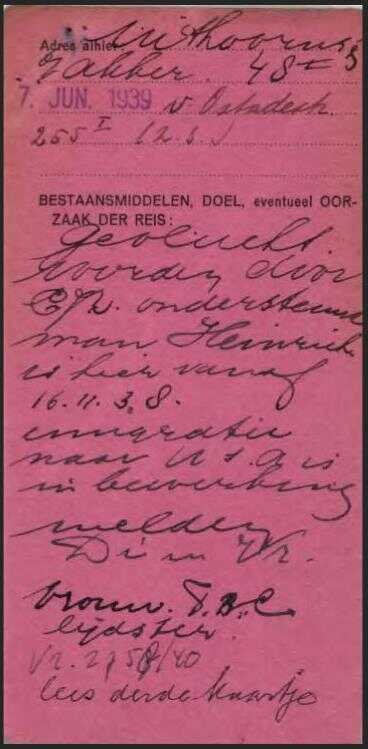 Adres alhier: Uithoorns
bakker. 48 I
7. JUN. 1939 v. Ostadestr.
255 I b.z.s.
BESTAANSMIDDELEN, DOEL, eventueel OOR-
ZAAK DER REIS:
Gevlucht.
worden door
ondersteund
man Heinrich
is hier vanaf
16.11.38.
emigratie
naar U.S.A is
in bewerking
melden
Di en Vr.
vrouw. T.B.C
lijdster.
Vr. 2/5 /40
lees derde kaartje